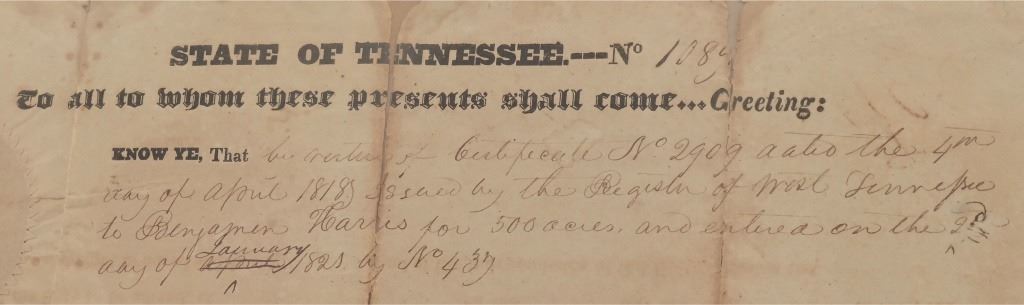 STATE OF TENNESSEE.---No 1089
To all to whom these presents shall come... Greeting:
KNOW YE, That by virtue of Certificate No 2909 dated the 4th
day of April 1818, Issued by the Register of West Tennessee
to Benjamin Harris for 500 acres, and entered on the 2nd
day of January 1821 by No 437